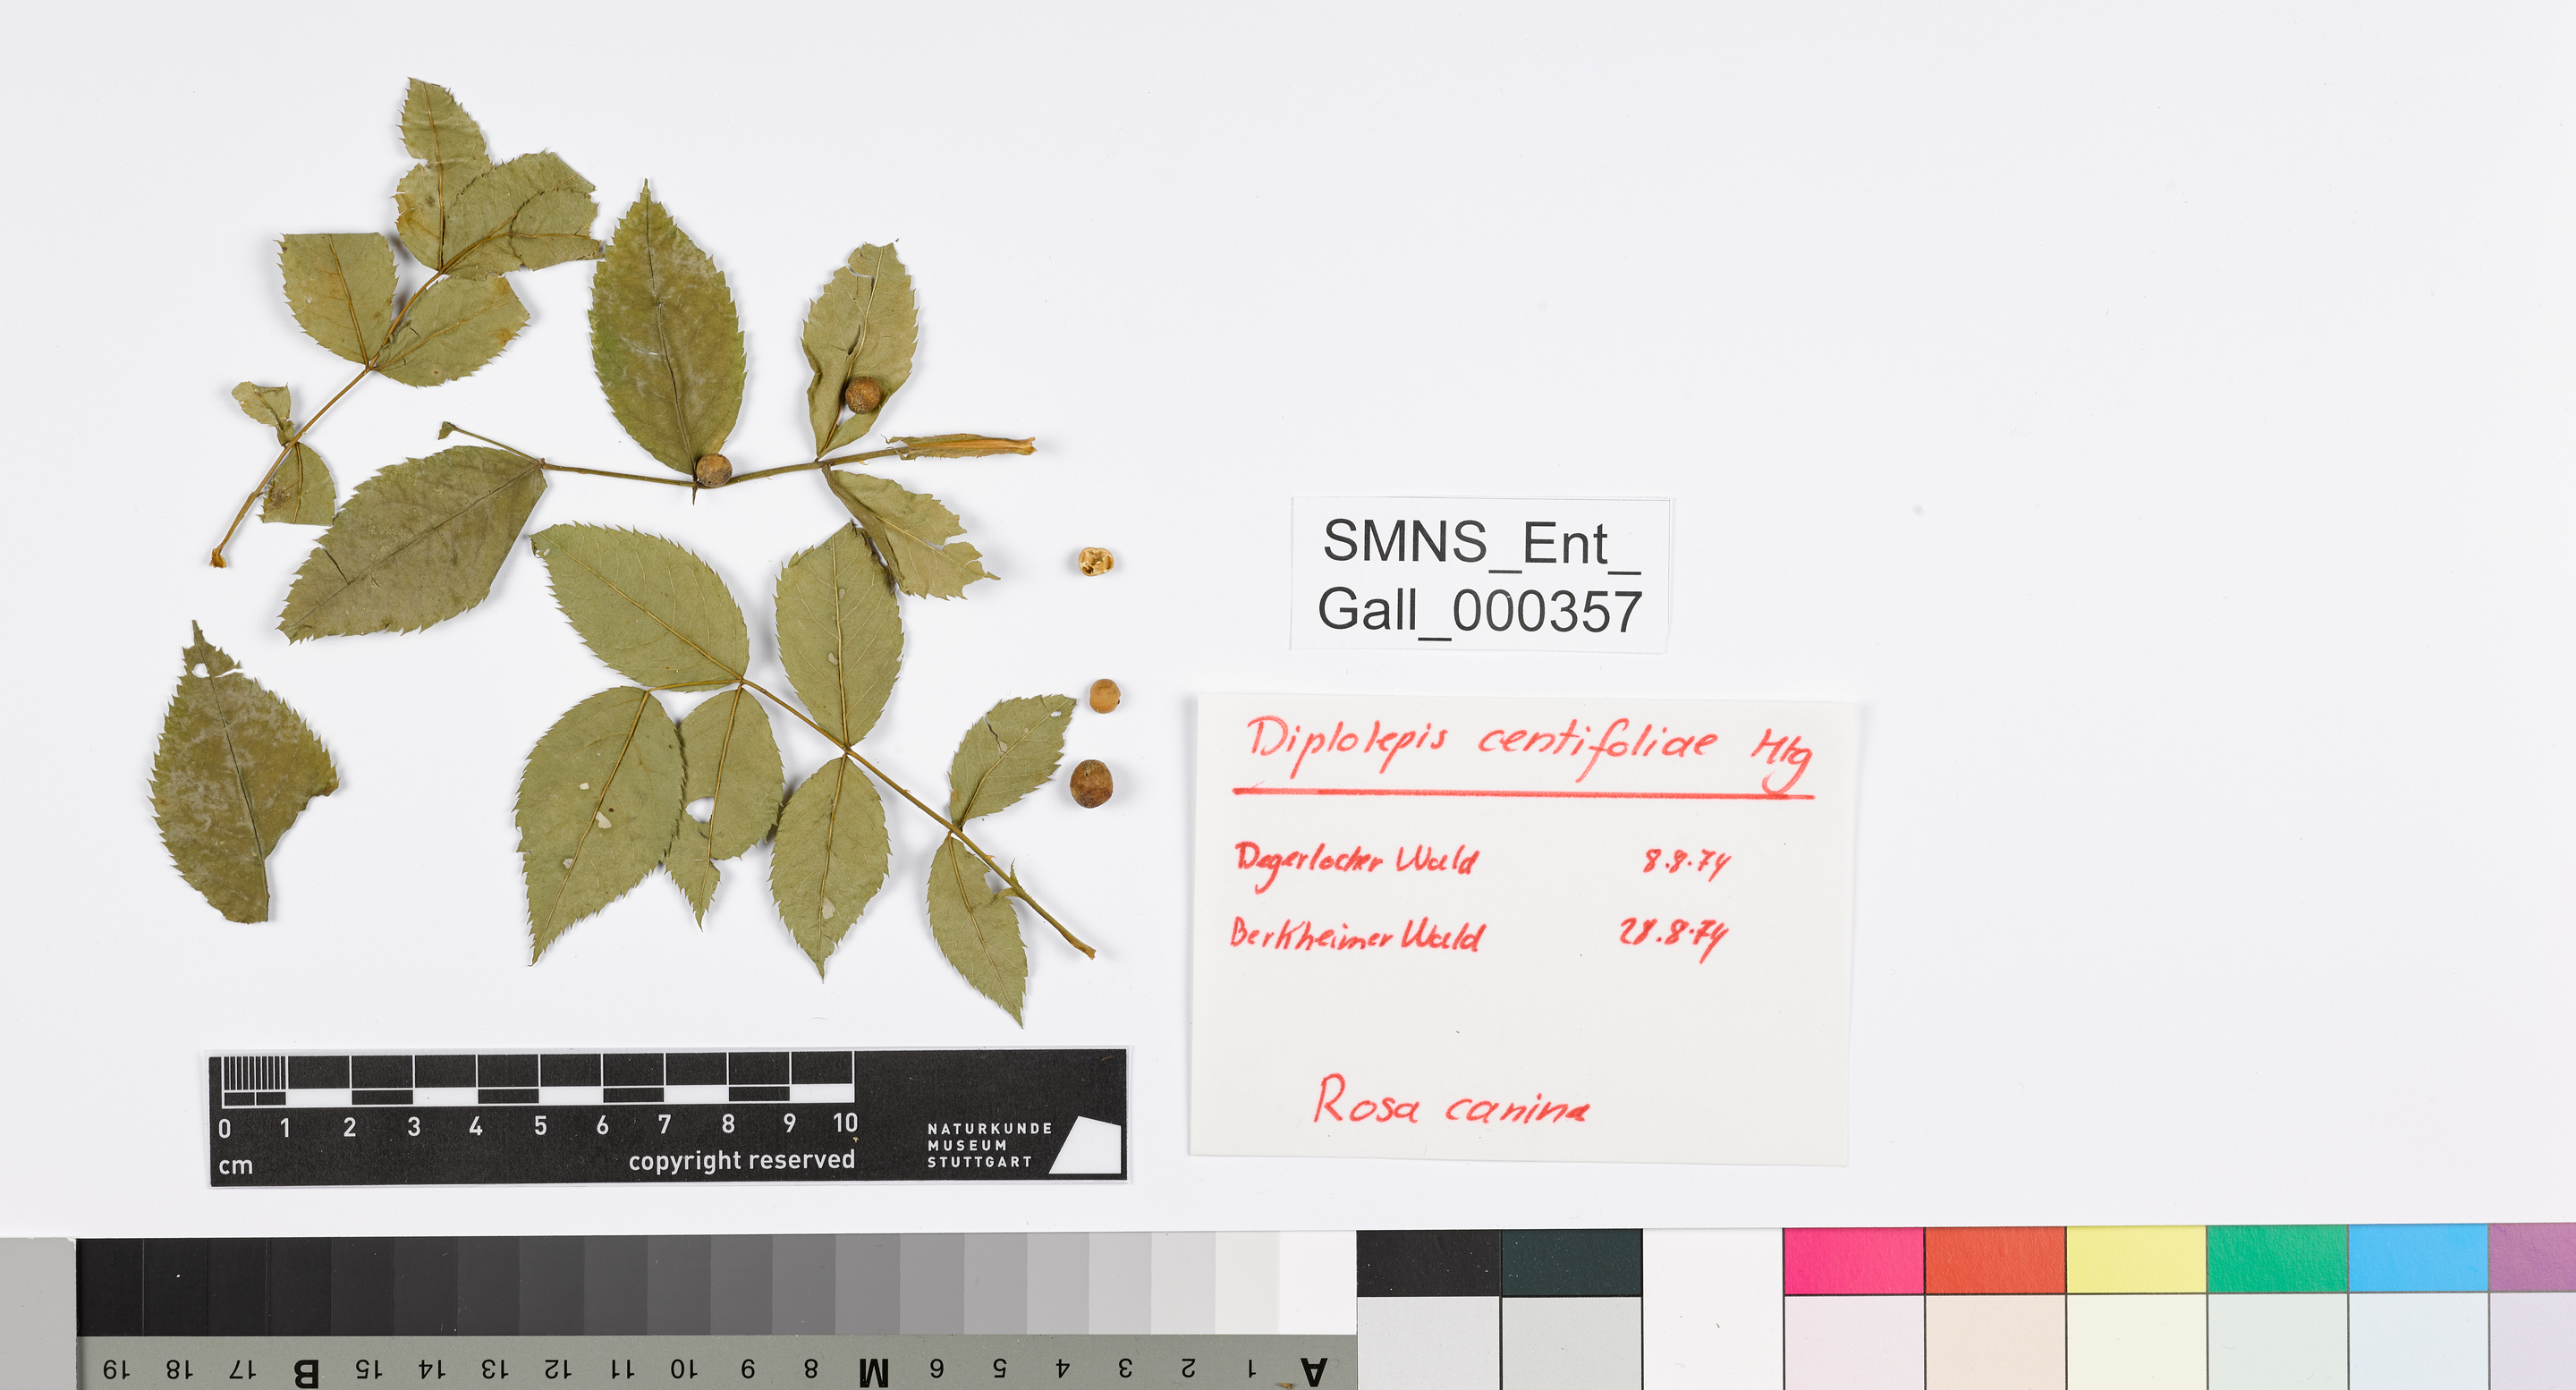 SMNS_Ent_
Gall_000357
Diplolepis centifoliae Htg
Degerlocher Wald 8.8.74
Berkheimer Wald 28.8.74
Rosa canina
0 1 2 3 4 5 6 7 8 9 10
cm
copyright reserved
NATURKUNDE
MUSEUM
STUTTGART
19 18 17 B 15 14 13 12 11 10 9 8 M 6 5 4 3 2 1 A